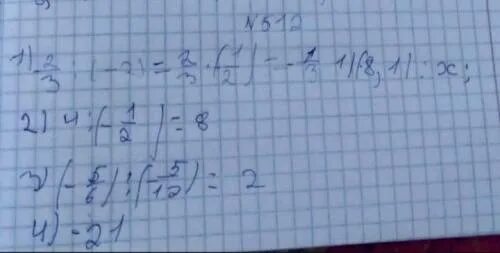 N512
1) 2/3 : (-2) = 2/3 · (1/2) = -1/3 1) (8,1) : x;
2) 4 : (-1/2) = 8
3) (-5/6) : (-5/12) = 2
4) -21